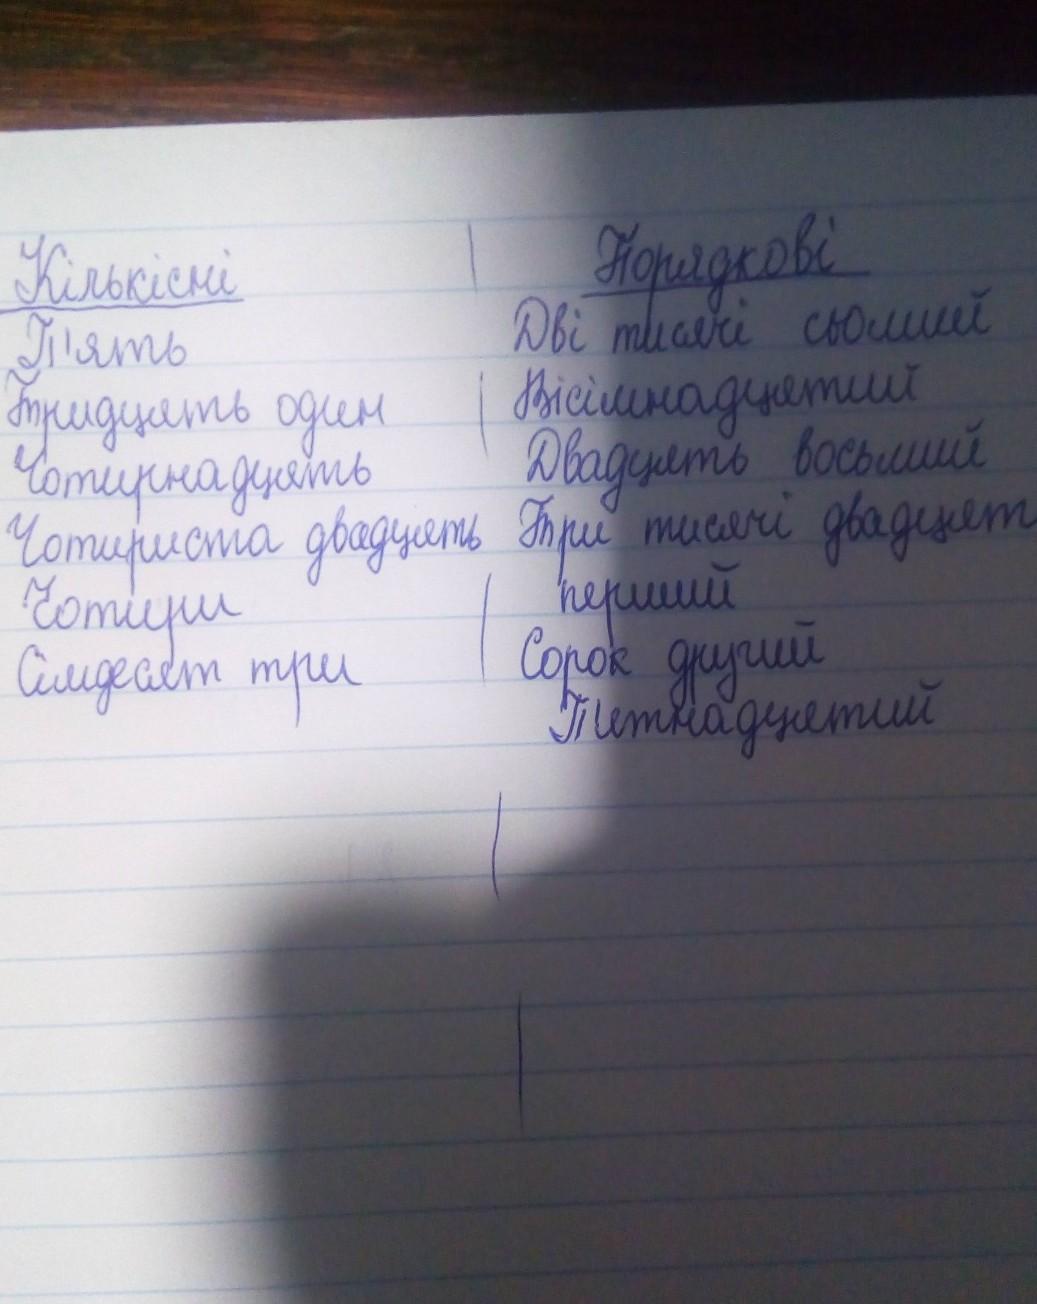 Кількісні | Порядкові
П'ять Дві тисячі сьомий
Тридцять один | Вісімнадцятий
Чотирнадцять Двадцять восьмий
Чотириста двадцять Три тисячі двадцят
Чотири | перший
Сімдесят три | Сорок другий
П'ятнадцятий